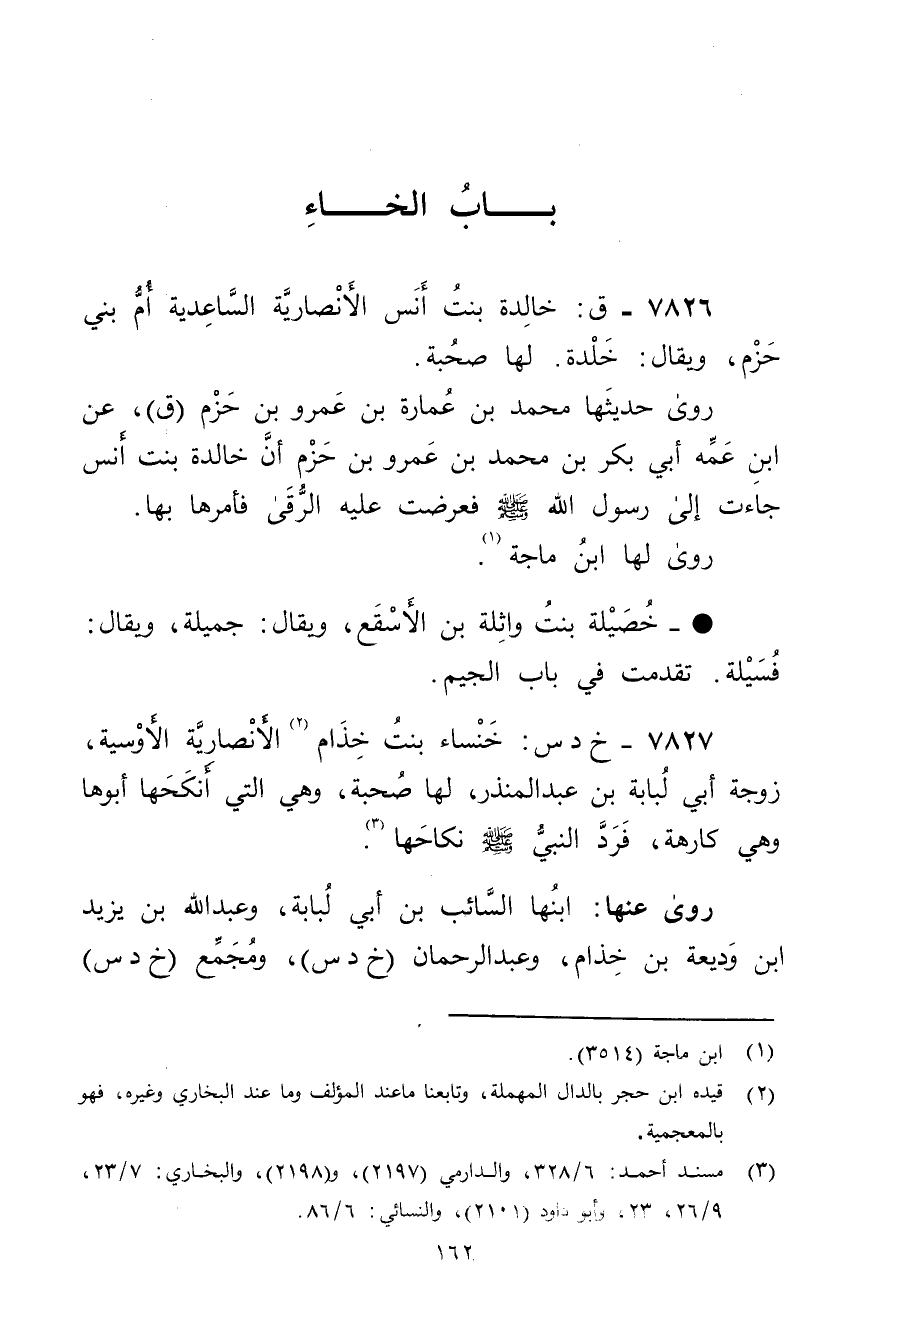 بـــــابُ الخـــــاءِ
٧٨٢٦ - ق: خالِدة بنتُ أَنَس الأَنْصاريَّة السَّاعِدية أُمُّ بني
حَزْم، ويقال: خَلْدة. لها صحُبة.
روىٰ حديثَها محمد بن عُمارة بن عَمرو بن حَزْم (ق)، عن
ابنِ عَمِّه أبي بكر بن محمد بن عَمرو بن حَزْم أنَّ خالدة بنت أَنس
جاءت إلىٰ رسول الله ﷺ فعرضت عليه الرُّقَىٰ فأمرها بها.
روىٰ لها ابنُ ماجة (١).
● - خُصَيْلة بنتُ واثِلة بن الأَسْقَع، ويقال: جميلة، ويقال:
فُسَيْلة. تقدمت في باب الجيم.
٧٨٢٧ - خ د س: خَنْساء بنتُ خِذَام (٢) الأَنْصاريَّة الأَوْسية،
زوجة أبي لُبابة بن عبدالمنذر، لها صُحبة، وهي التي أَنكَحَها أبوها
وهي كارهة، فَرَدَّ النبيُّ ﷺ نكاحَها (٣).
روىٰ عنها: ابنُها السَّائب بن أبي لُبابة، وعبدالله بن يزيد
ابن وَديعة بن خِذام، وعبدالرحمان (خ د س)، ومُجَمِّع (خ د س)
(١) ابن ماجة (٣٥١٤).
(٢) قيده ابن حجر بالدال المهملة، وتابعنا ماعند المؤلف وما عند البخاري وغيره، فهو
بالمعجمية.
(٣) مسند أحمد: ٣٢٨/٦، والدارمي (٢١٩٧)، و(٢١٩٨)، والبخاري: ٢٣/٧،
٢٦/٩، ٢٣، وأبو داود (٢١٠١)، والنسائي: ٨٦/٦.
١٦٢